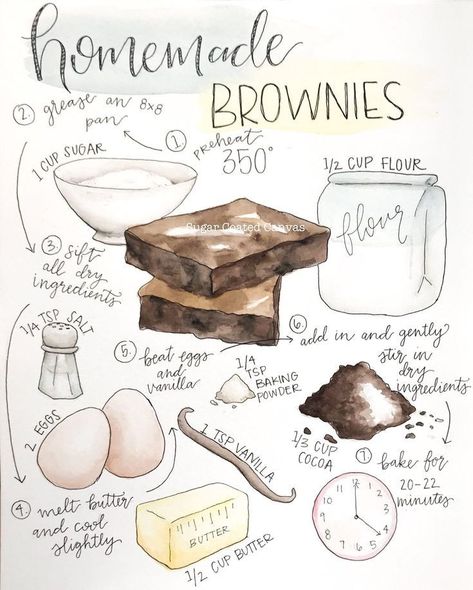 homemade
BROWNIES
1. preheat
350°
2. grease an 8x8
pan
1 CUP SUGAR
1/2 CUP FLOUR
flour
Sugar Coated Canvas
3. sift
all dry
ingredients
1/4 TSP SALT
5. beat eggs
and
vanilla
1/4
TSP
BAKING
POWDER
6. add in and gently
stir in
dry
ingredients
1/3 CUP
COCOA
2 EGGS
1 TSP VANILLA
4. melt butter
and cool
slightly
BUTTER
1/2 CUP BUTTER
7. bake for
20-22
minutes